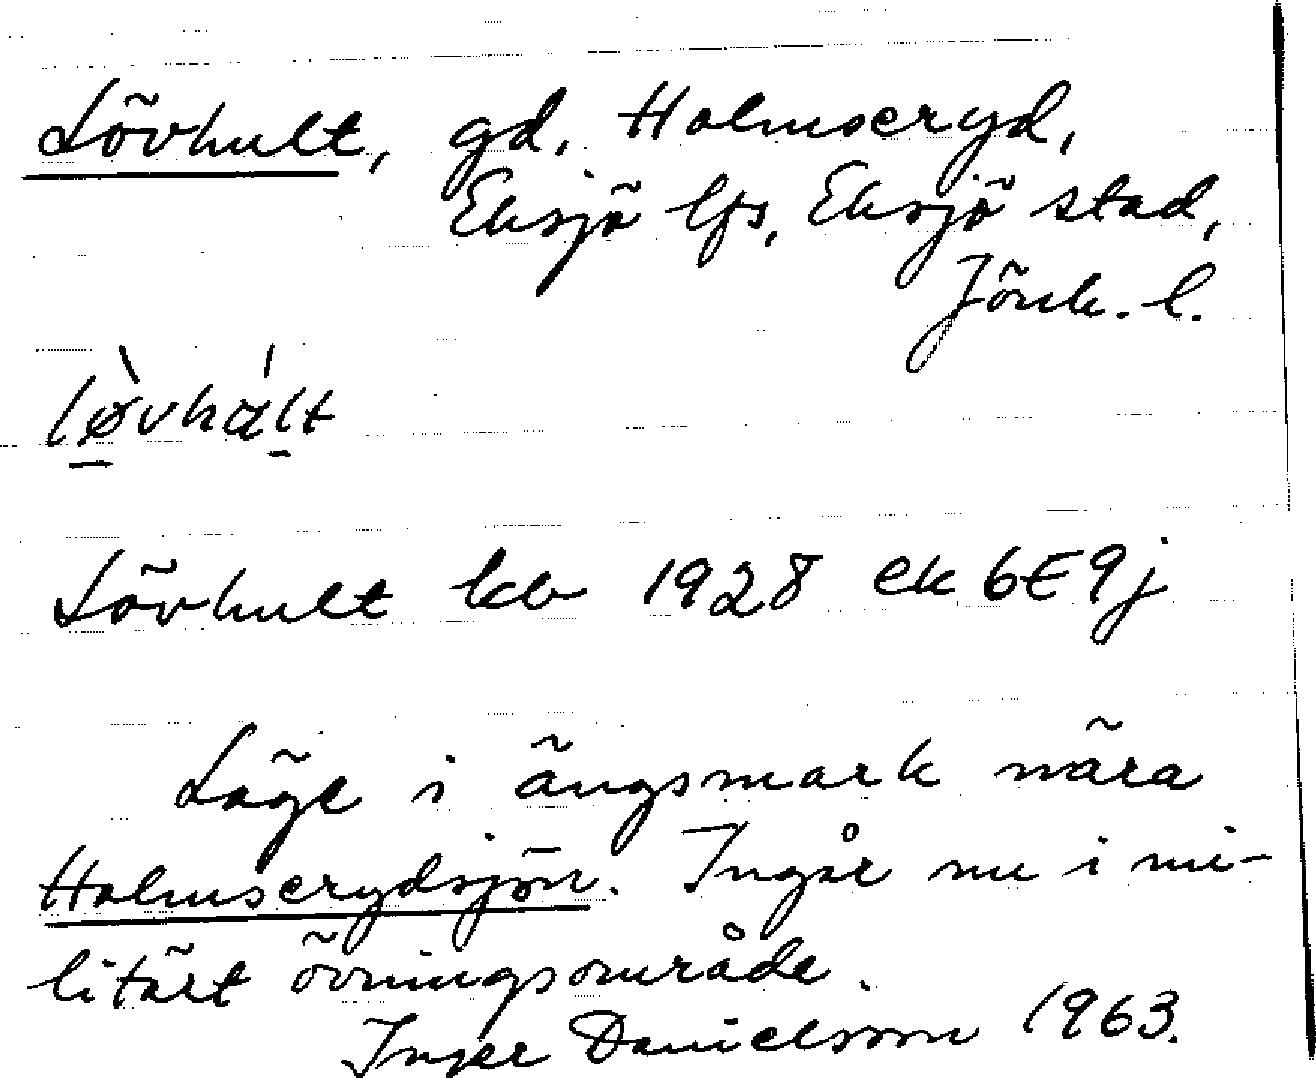 Lövhult, gd, Holmseryd,
Eksjö lfs, Eksjö stad,
Jönk. l.
lø̀vhál̠t
Lövhult kb 1928 ek 6E9j
Läge i ängsmark nära
Holmserydsjön. Ingår nu i mi-
litärt övningsområde.
Inger Danielsson 1963.